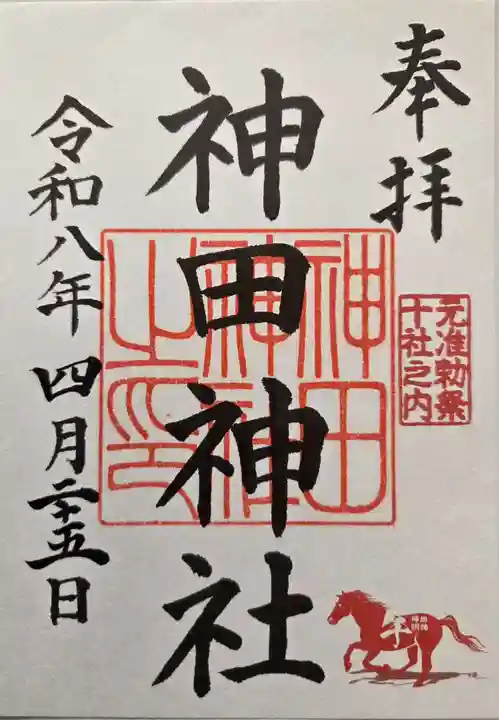 奉拝
元准勅祭
十社之内
神田神社
神田
神社
之印
令和八年 四月二十五日
午